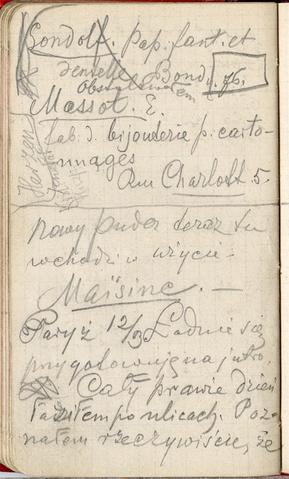 Gondolf. Pap. fant. et
dentelle Bond. 76.
Obstalowałem
Massot. E.
fab. d. bijouterie p. carto-
nnages
Rue Charlott 5.
Nowy puder teraz tu
wchodzi w użycie
Maïsine. —
Paryż 12/3 Ładnie się
przygotowuję na jutro.
Cały prawie dzień
łaziłem po ulicach. Poz-
nałem rzeczywiście, że